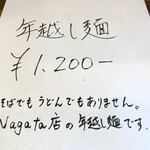 年越し麺
¥1,200-
そばでもうどんでもありません。
Nagata店の年越し麺です。